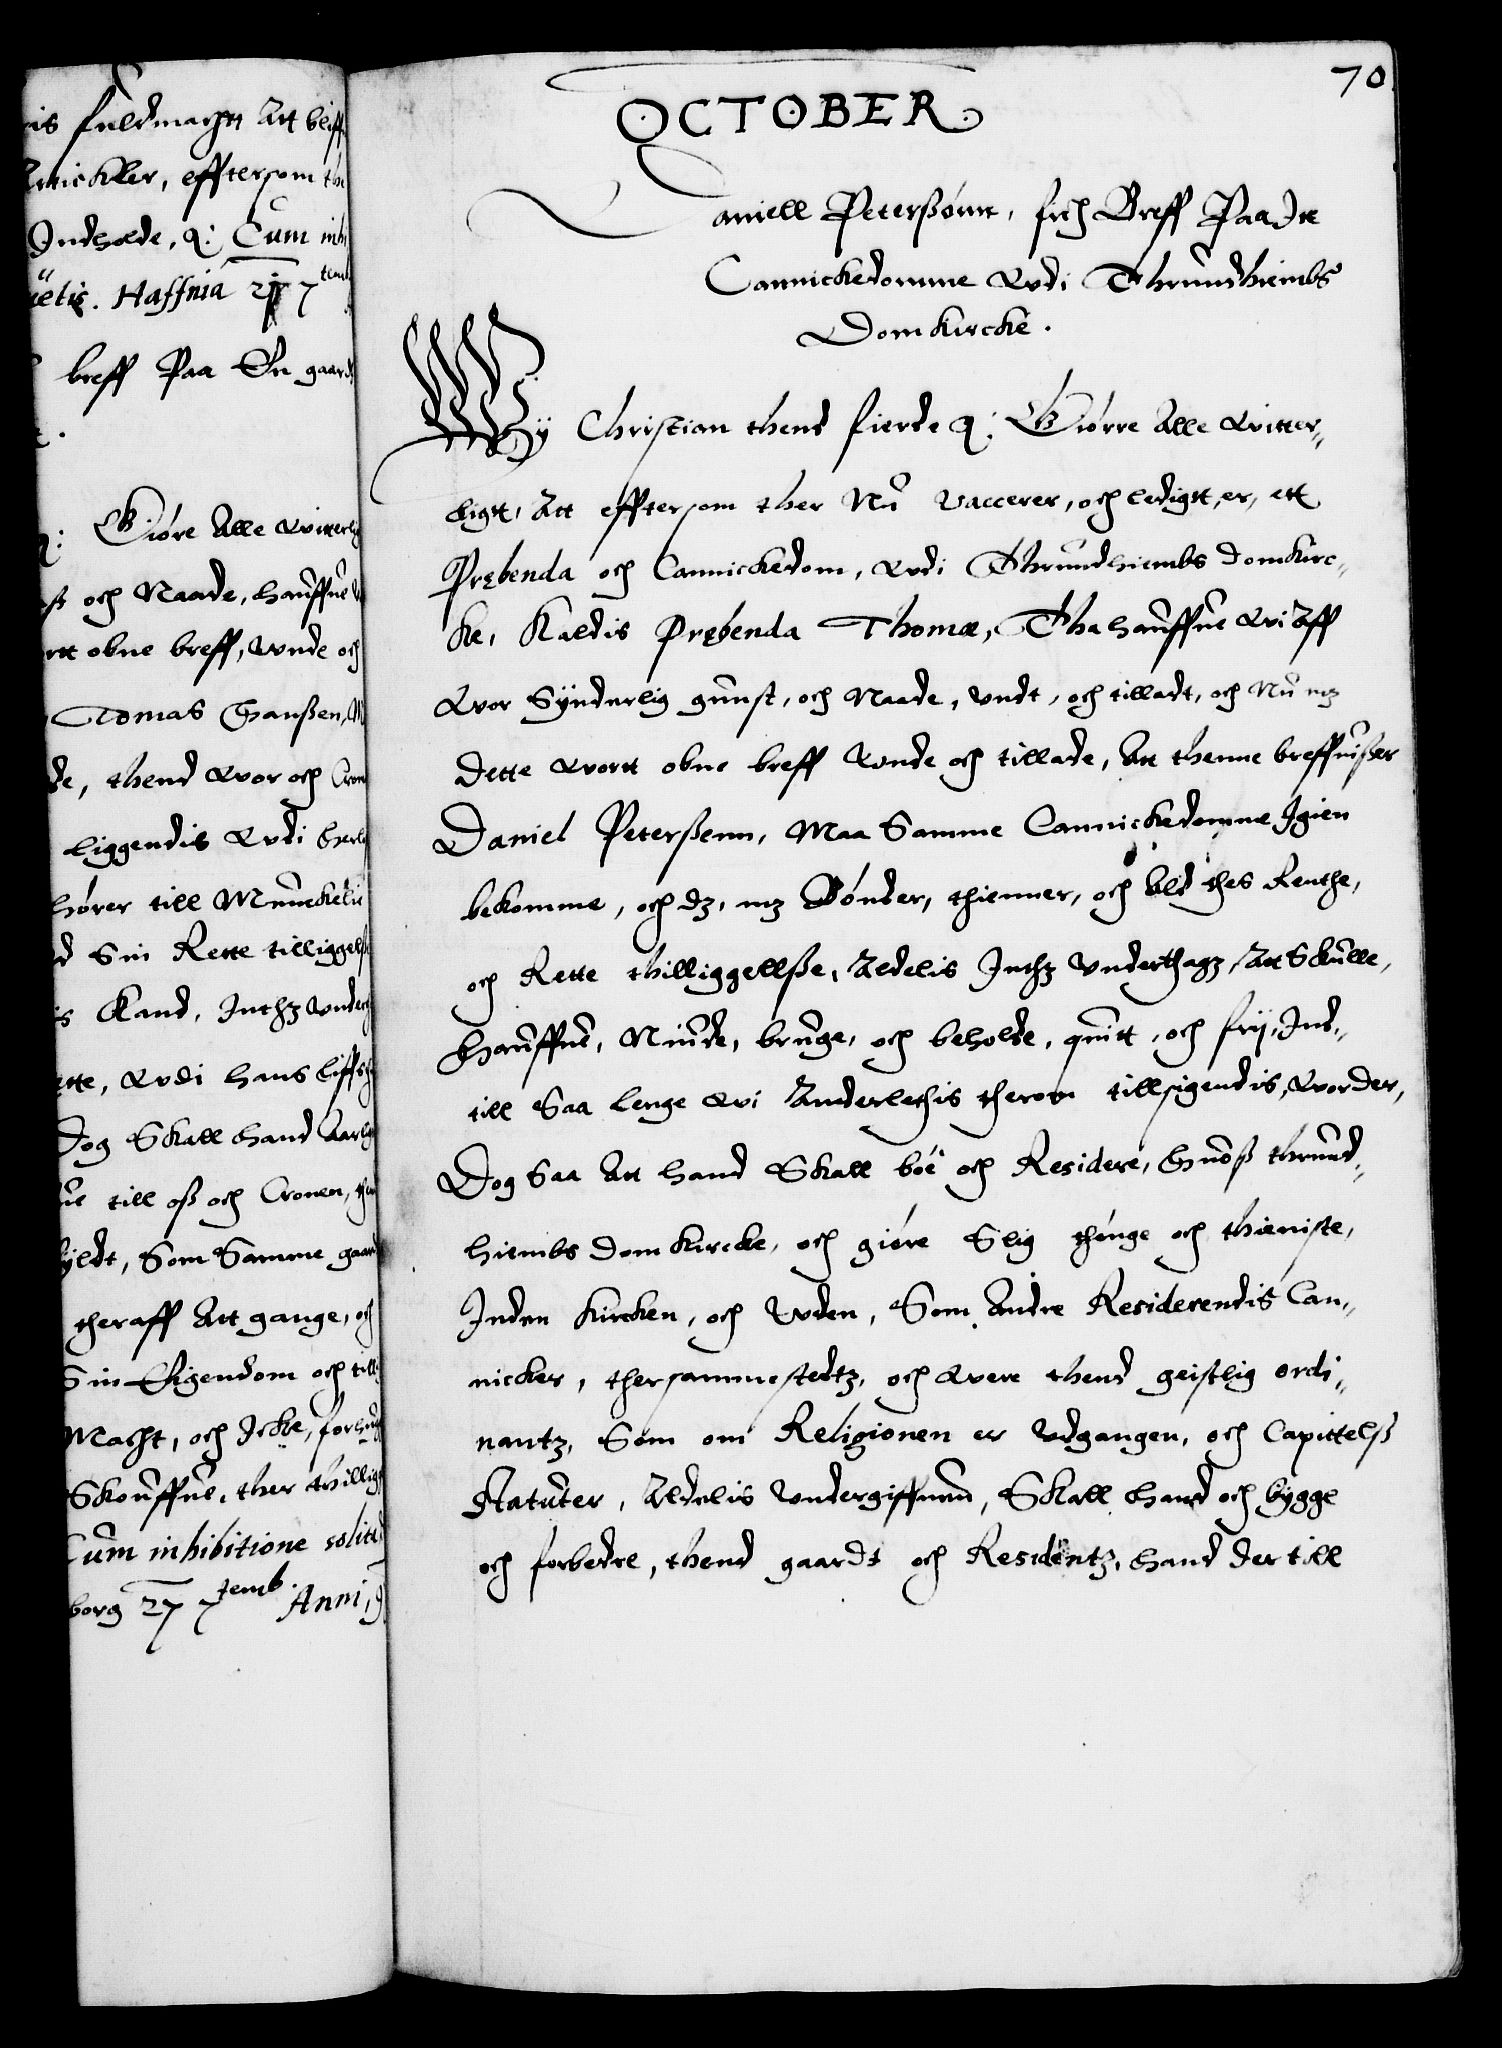 is fuldmachtt Att bliff
Artickler, efftersom the
Indholde, &: Cum inhi
uetis. Haffnia 27 7temb
breff Paa En gaard
&: Giöre Alle Witterlig
och Naade, hauffue
obne breff, Vnde och
Tomas Hanßen,
de, thend Wor och Cron
liggendis Wdi
hörer till Munckeliff
Sin Rette tilliggelse
Kand, Inthz Vnder
ette, Wdi hans liffs
Dog Skall hand Aarlig
till oß och Cronen, the
Som Samme gaard
theraff Att gange, och
Sin Eigendom och till
Macht, och Icke, forhug
Skouffue, ther thillig
Cum inhibitione solita
borg 27 7temb. Anni,
70
OCTOBER
Daniell Peterßönn, fich Breff Paa Itt
Cannickedomme Wdi Thrundhiembs
Domkircke.
Wy Christian thend fierde &: Giörre Alle Witter„
ligtt, Att efftersom ther Nu Vaccerer, och ledigtt, er, ett
Prębenda och Cannickedom, Wdi Thrundhiembs Domkirc„
ke, Kaldis Prębenda Thomæ, Tha hauffue Wi Aff
Wor Synderlig gunst, och Naade, Undt, och tilladt, och Nu mz
dette Wortt obne breff Vnde och tillade, Att thenne breffuißer
Daniel Peterßenn, Maa Samme Cannickedomme Igien
bekomme, och dz, mz Bönder, thienner, och Ald thes Renthe,
och Rette thilliggellße, Aldelis Inthz Vnderthagz, Att Skulle,
Hauffue, Niude, bruge, och beholde, quitt, och frij, Ind„
till Saa lenge Wi Anderlethis therom tillsigendis, Worder,
Dog Saa Att hand Skall boe och Residere, Huoß thrund„
hiembs Domkircke, och giöre Slig thönge och thieniste,
Inden Kircken, och Uden, Som Andre Residerendis Can„
nicker, thersammestedtz, och Were thend geistlig ordi„
nantz, Som om Religionen er Udgangen, och Capittelß
Statuter, Aldelis Undergiffuenn, Skall hand och bygge
och forbedre, thend gaardt och Residentz, hand der till